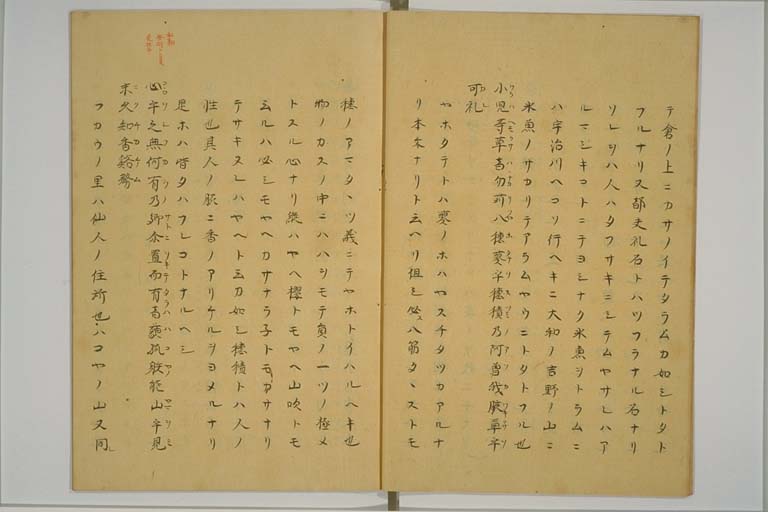 テ倉ノ上ニカサノイテタラムカ如シトタト
フルナリ又都夫礼石トハツフラナル石ナリ
ソレヲハ人ハタフサキニシテムヤサレハア
ルマシキコトニテヨシナク氷魚ヲトラムニ
ハ宇治川ヘコソ行ヘキニ大和ノ吉野ノ山ニ
氷魚ノサカリテアラムヤウニトタトフル也
小児等草者勿苅八穂蓼乎穂積乃阿曽我腋草乎
可礼
ヤホタテトハ蓼ノホハヤスチタツカアルナ
リ本木ナリト云ヘリ但シ必八筋タヽストモ
穂ノアマタタツ義ニテヤホトイハルヘキ也
物ノカスノ中ニハハシモテ員ノ一ツノ極メ
トスル心ナリ縦ハヤヘ桜トモヤヘ山吹トモ
云ルハ必シモヤヘカサナラ子トモカサナリ
テサキヌレハヤヘト云カ如シ穂積トハ人ノ
姓也其人ノ腋ニ香ノアリケルヲヨメルナリ
是ホハ皆タハフレコトナルヘシ
心乎之無何有乃郷尓置而有者藐孤射能山乎見
末久知香谿務
フカウノ里ハ仙人ノ住所也ハコヤノ山又同